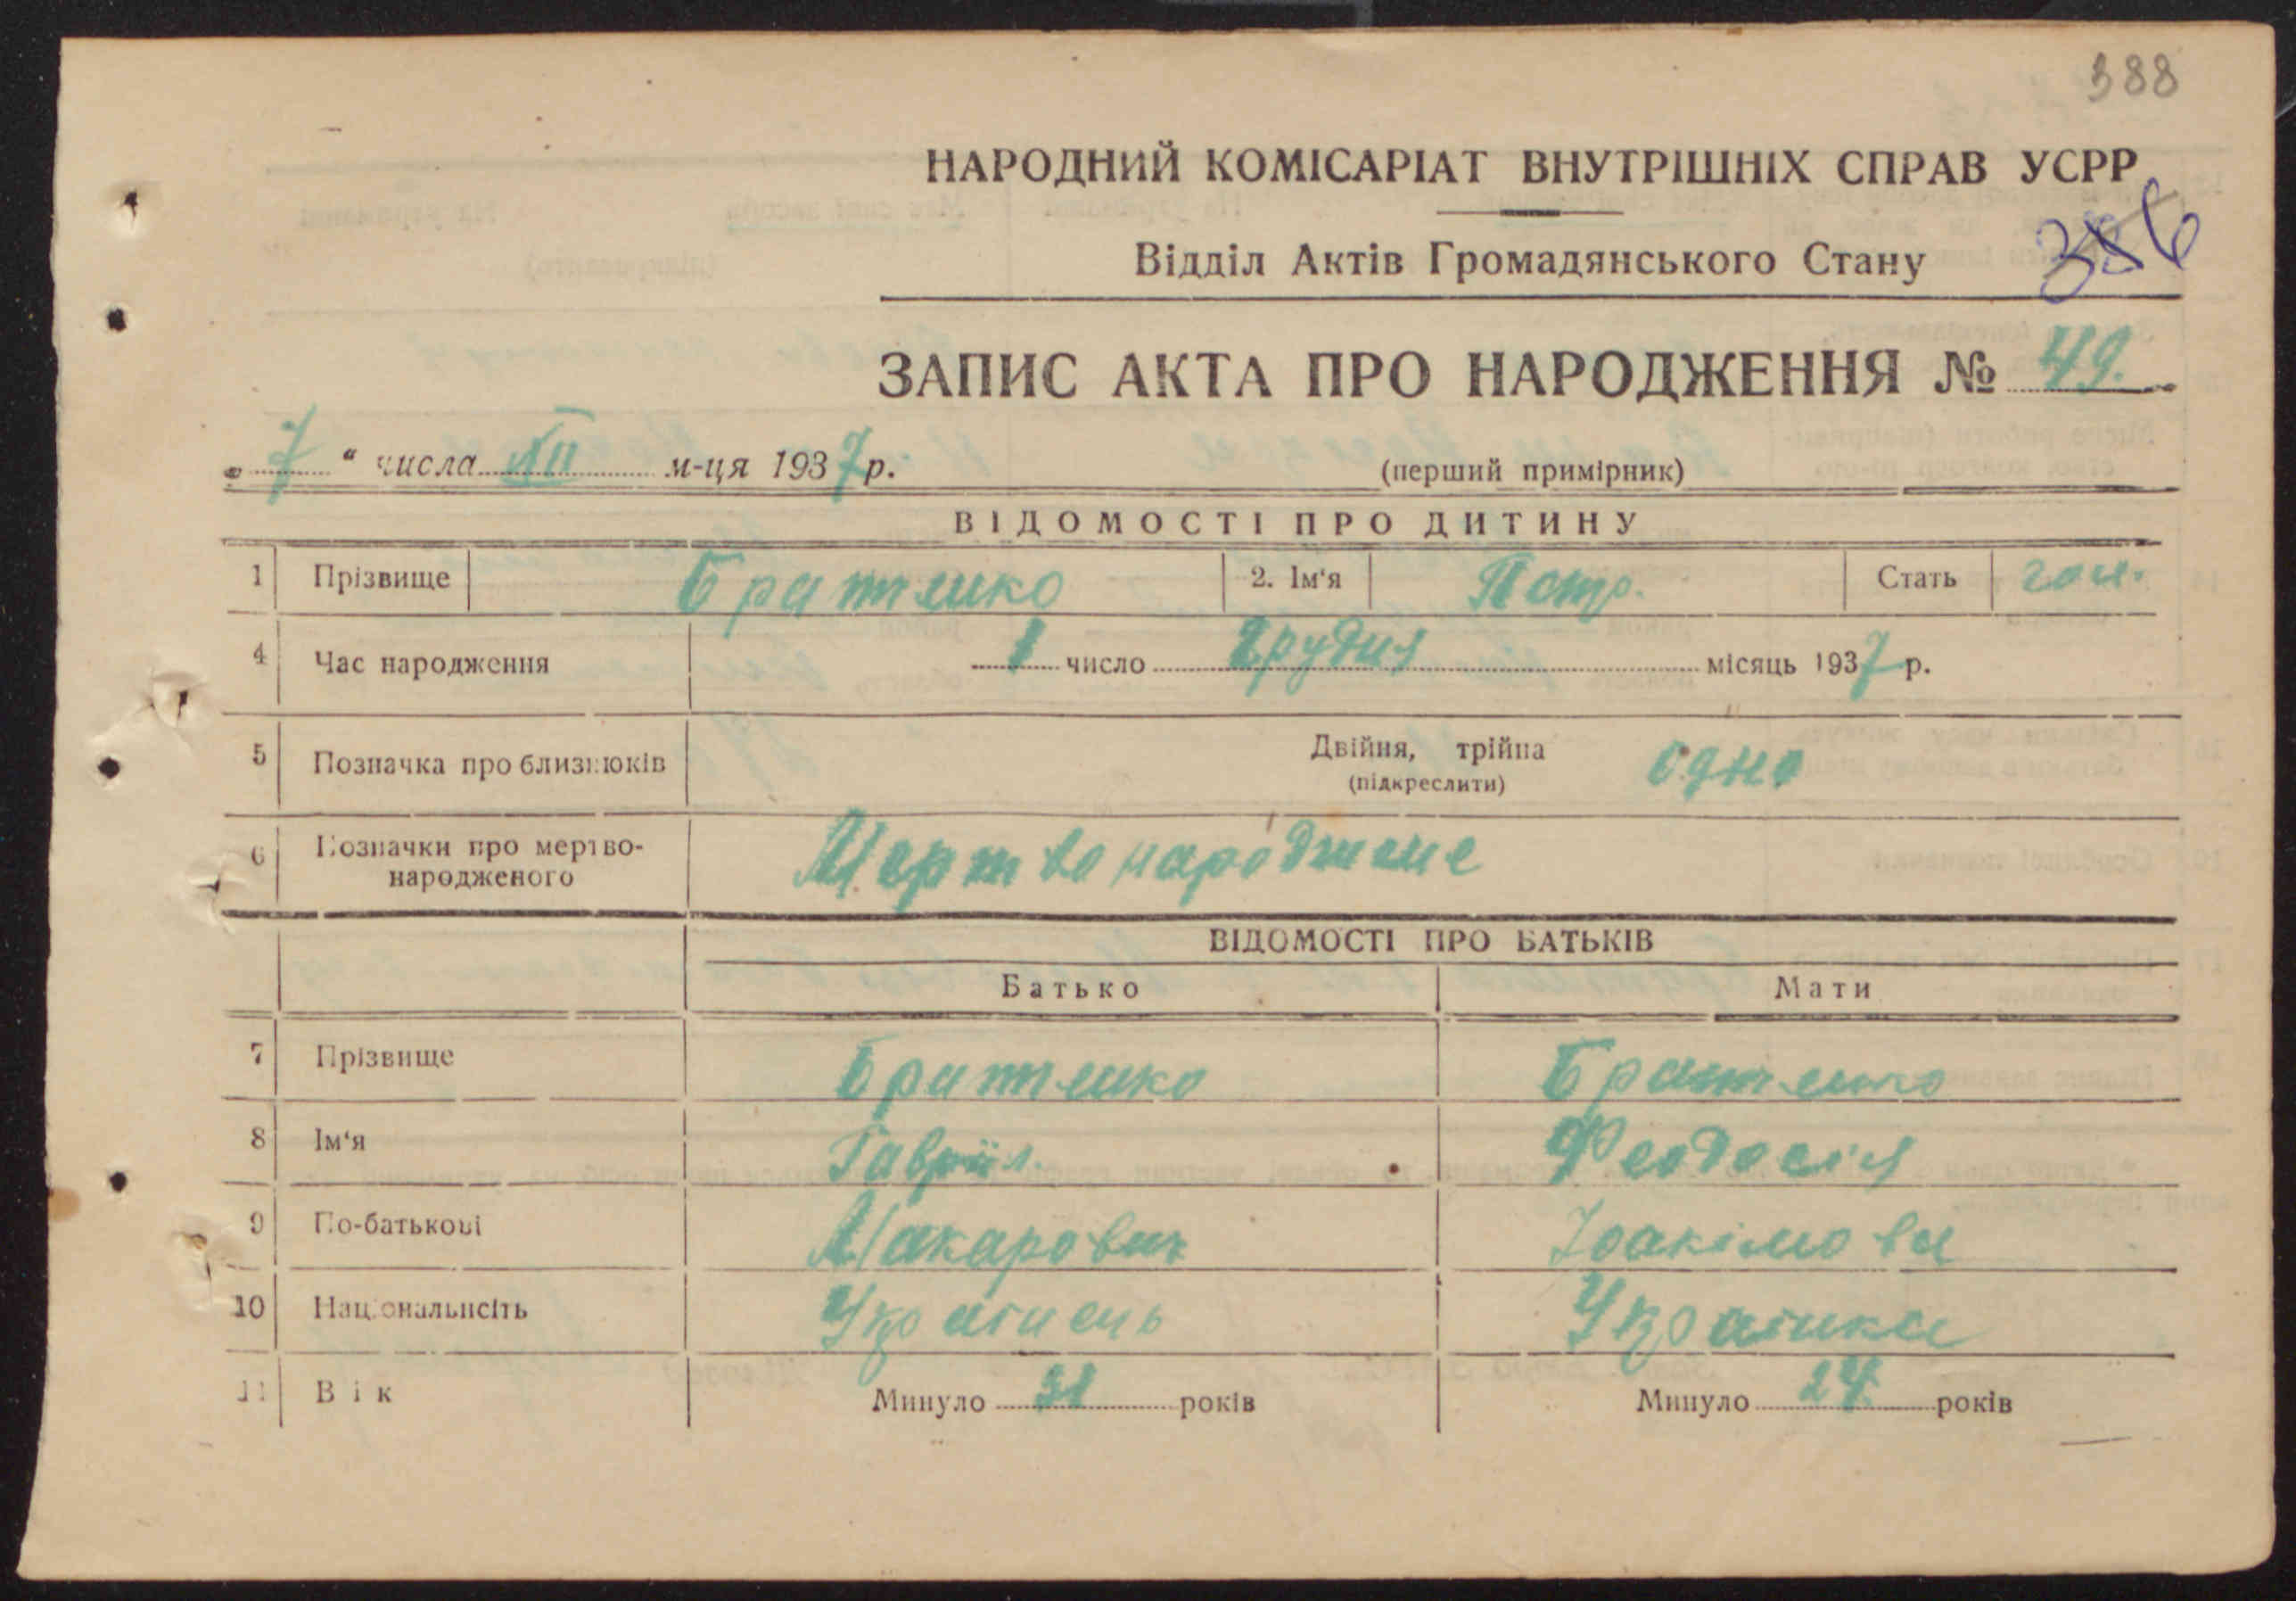 388
НАРОДНИЙ КОМІСАРІАТ ВНУТРІШНІХ СПРАВ УСРР
Відділ Актів Громадянського Стану
ЗАПИС АКТА ПРО НАРОДЖЕННЯ № 49.
„ 7 “ числа XII м-ця 1937 р. (перший примірник)
ВІДОМОСТІ ПРО ДИТИНУ
1 Прізвище Братенко 2. Ім‘я Петр. Стать чол.
4 Час народження 1 число Грудня місяць 1937 р.
5 Позначка про близнюків Двійня, трійна одно
(підкреслити)
6 Позначки про мертво-
народженого Мертвонароджене
ВІДОМОСТІ ПРО БАТЬКІВ
Батько Мати
7 Прізвище Братенко Братенко
8 Ім‘я Гавриїл. Феодосія
9 По-батькові Макарович Іоакімова
10 Національність Українець Українка
11 Вік Минуло 31 років Минуло 24 років